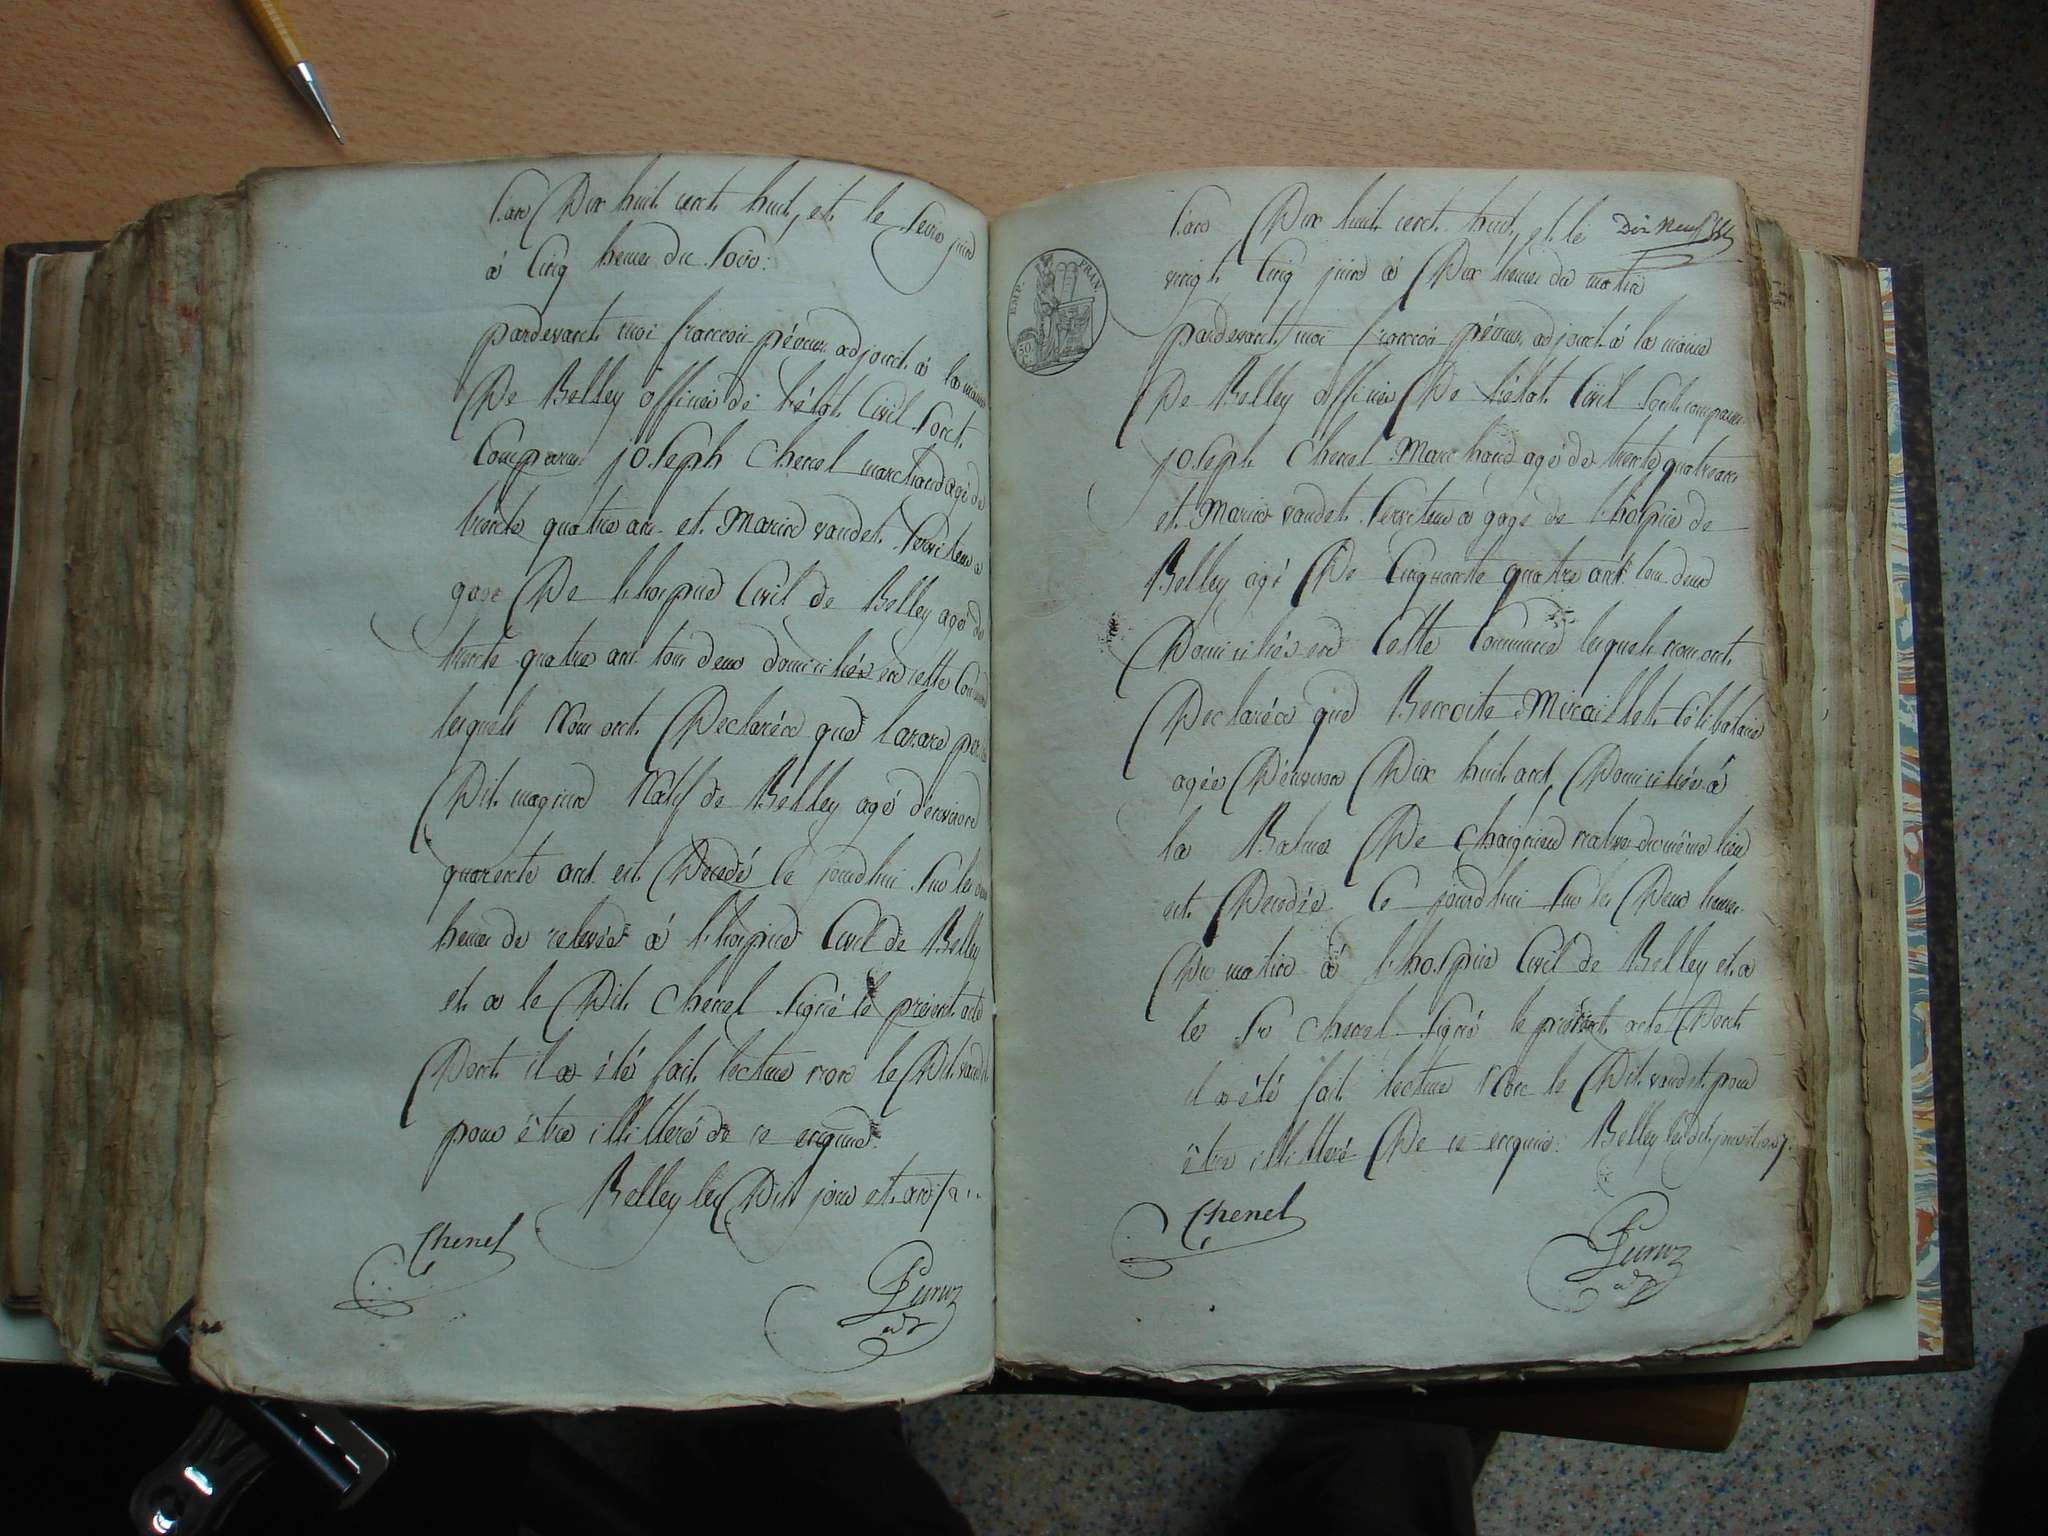 L'an Dix huit cent huit, et le Seize juin
à Cinq heures du Soir.
pardevant moi françois péroux adjoint à la mairie
De Belley officier de L'état Civil Sont
Comparus joseph Chenel marchand agé de
trente quatre ans et Marin vaudet Serviteur a
gage De l'hospice Civil de Belley agé de
trente quatre ans tous deux domiciliés en cette Commune
lesquels Nous ont Déclarées que Lazare
Dit magnin Natif de Belley agé d'environ
quarente ans est Décédé ce jourd'hui Sur les
heures de relevée à l'hospice Civil de Belley
et a le Dit Chenel Signé le présent acte
Dont il a été fait lecture non le Dit vaudet
pour être illitteré de ce enquis.
Belley les Dit jour et an
Chenel
EMP. FRAN.
50
Dix neuf
L'an Dix huit cent huit, et le
vingt Cinq juin à Dix heures du matin
pardevant moi françois péroux adjoint à la mairie
De Belley officier De L'état Civil Sont comparus
joseph Chenel Marchand agé de trente quatre ans
et Marin vaudet Serviteur a gage de l'hospice de
Belley agé De Cinquante quatre ans tous deux
Domiciliés en Cette Commune lesquels nous ont
Déclarées que Benoite Miraillet Célibataire
agée D'environ Dix huit ans Domiciliée à
la Balme De native du même lieu
est Décédée Ce jourd'hui Sur les Deux heures
Du matin à l'hospice Civil de Belley et a
le Sr Chenel Signé le présent acte Dont
il a été fait lecture Non le Dit vaudet pour
être illitteré De ce enquis. Belley les dits jour et an
Chenel